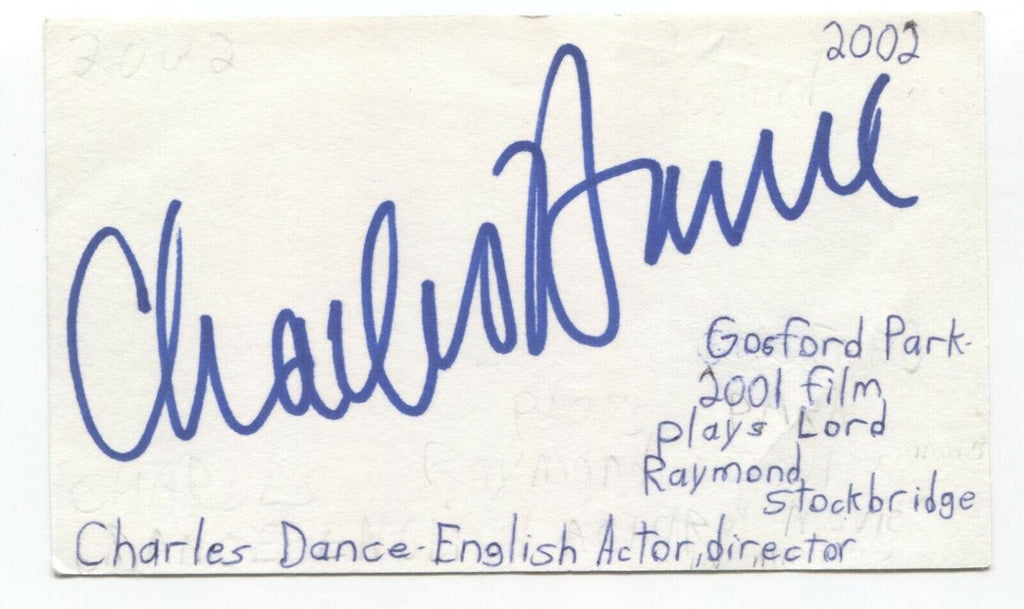 2002
Charles Dance
Gosford Park-
2001 film
plays Lord
Raymond
Stockbridge
Charles Dance-English Actor, director